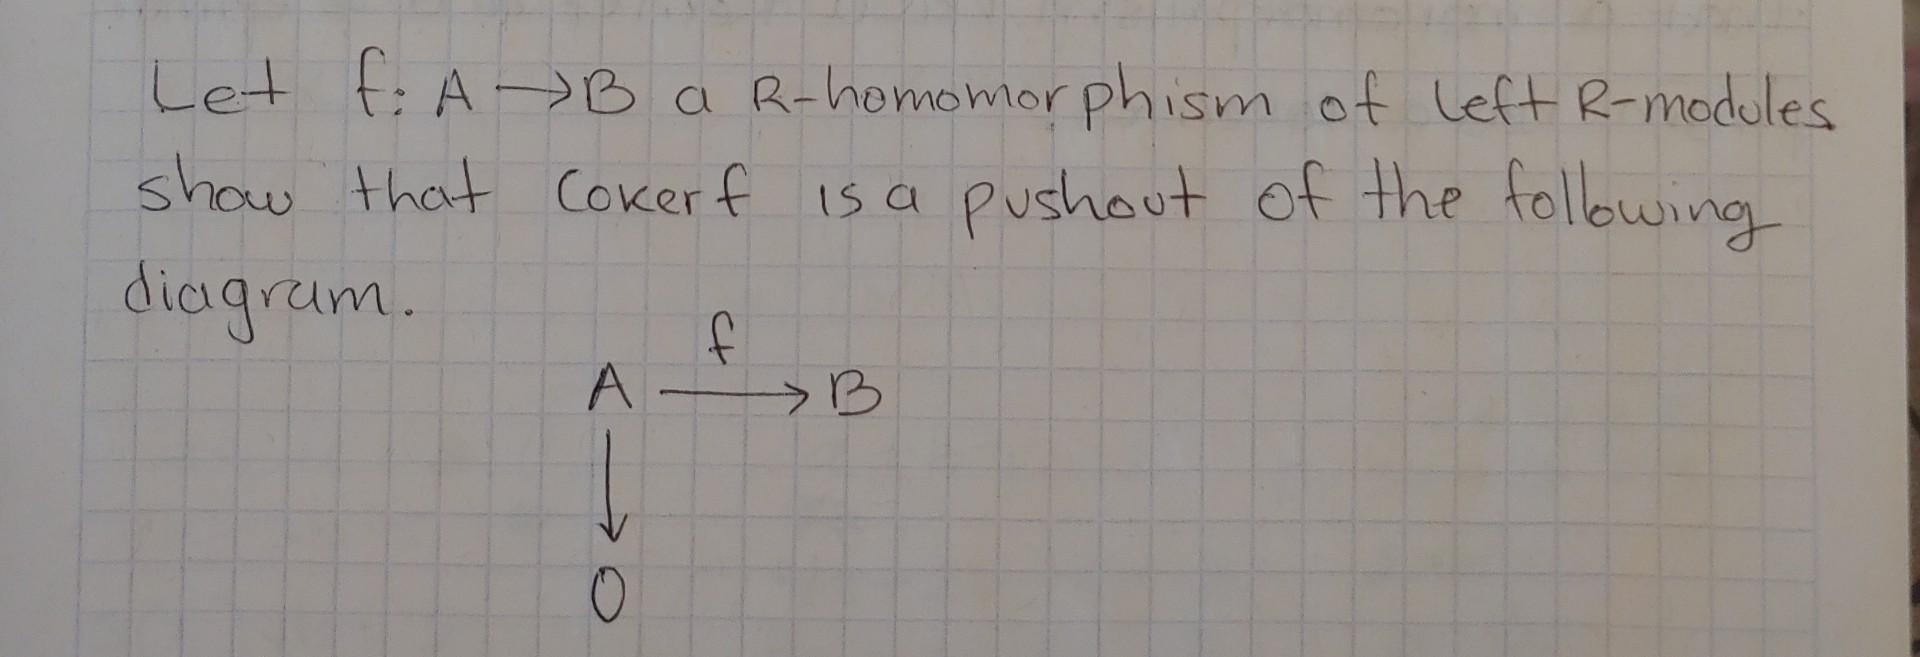 Let f: A → B a R-homomorphism of left R-modules
show that Coker f is a pushout of the following
diagram.
f
A → B
↓
0